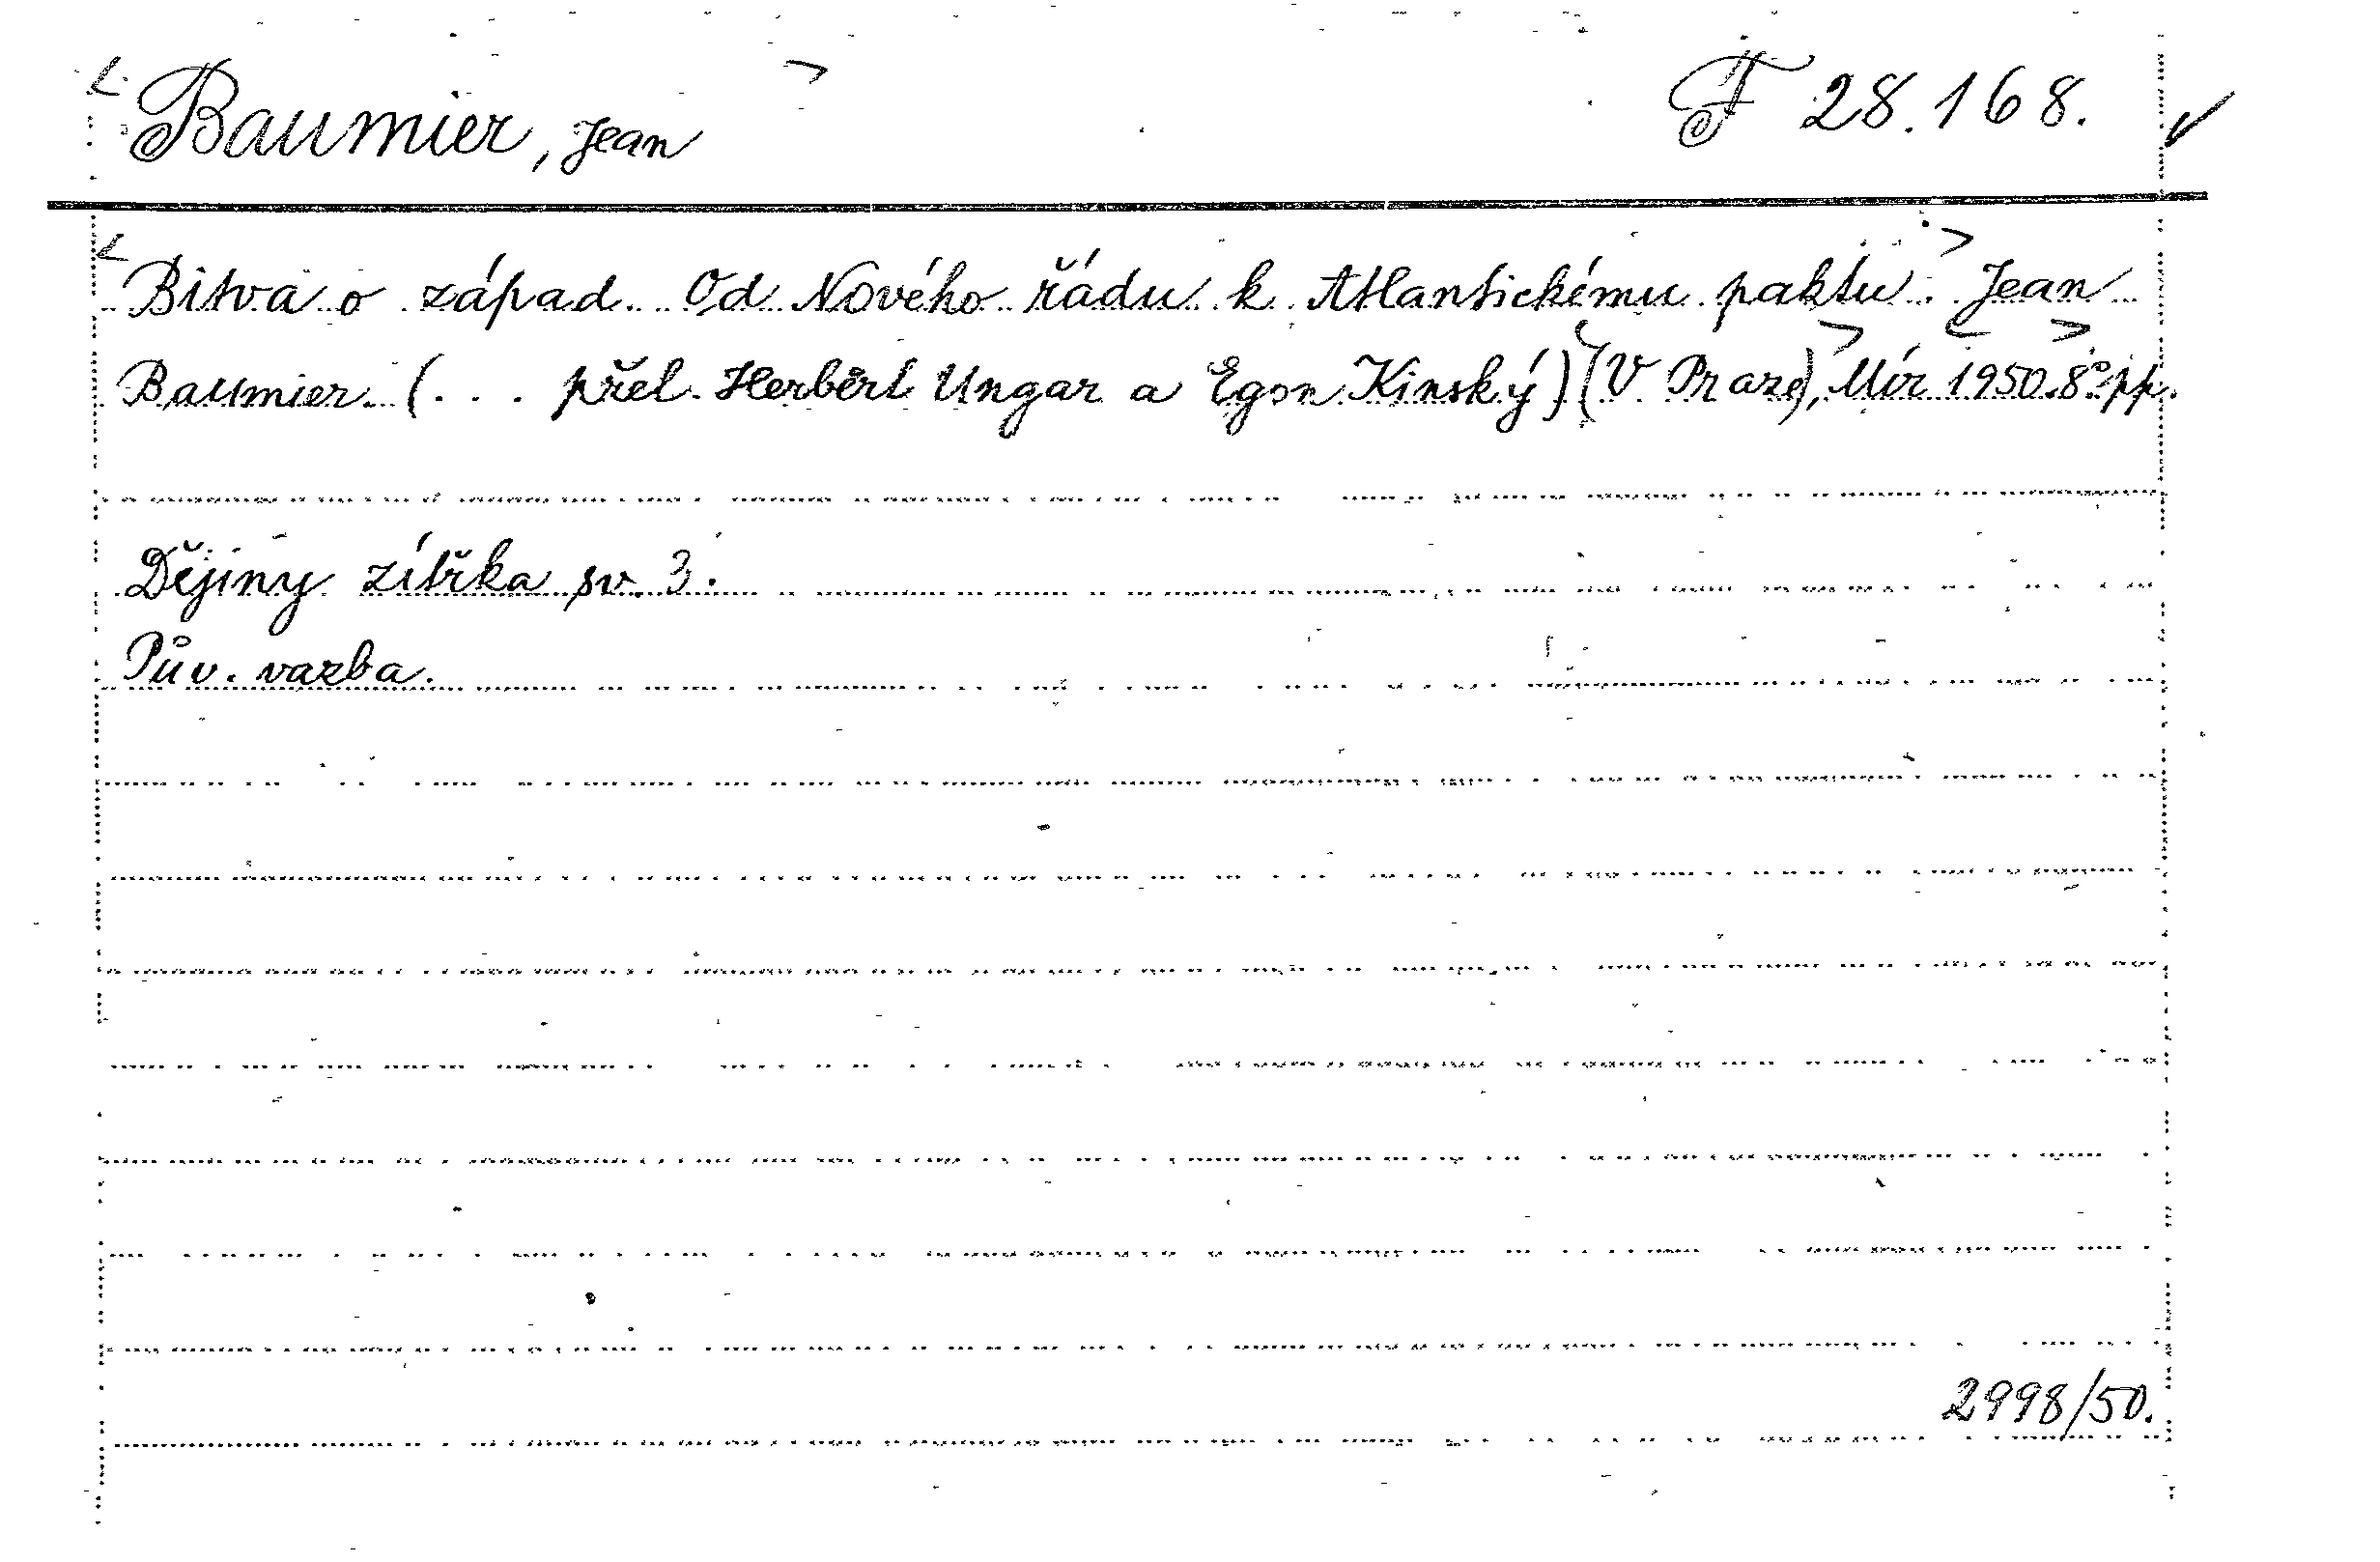 Baumier, Jean F 28.168. ✓
Bitva o západ. Od Nového řádu k Atlantickému paktu. Jean
Baumier. (... přel. Herbert Ungar a Egon Kinský) (V Praze), Mír 1950. 8° pp.
Dějiny zítřka sv. 3.
Pův. vazba.
2998/50.